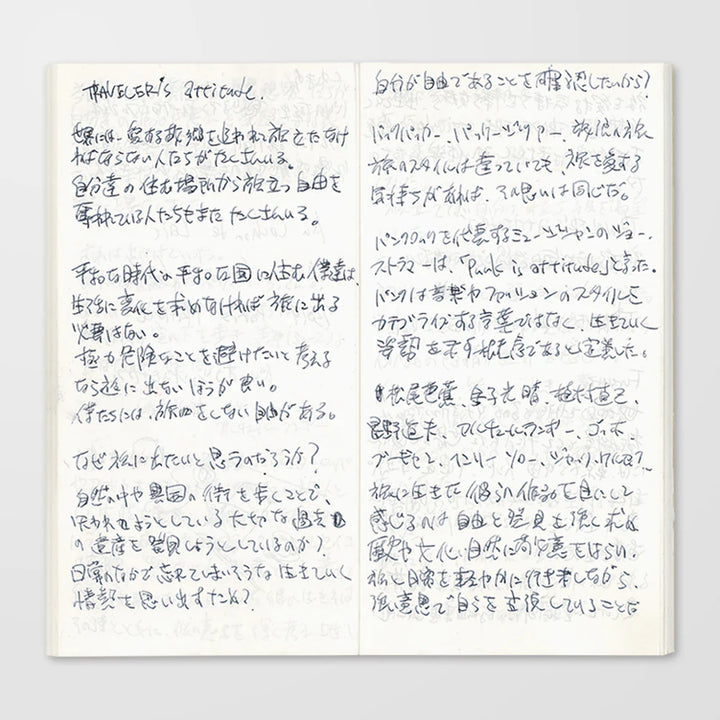 TRAVELER's attitude.
世界には、愛する故郷を追われ旅立たなけ
ればならない人たちがたくさんいる。
自分達の住む場所から旅立つ自由を
奪われている人たちもまたたくさんいる。
平和な時代の平和な国に住む僕達は、
生活に変化を求めなければ旅に出る
必要はない。
極力危険なことを避けたいと考える
なら旅に出ないほうが良い。
僕たちには、旅をしない自由がある。
なぜ旅に出たいと思うのだろうか?
自然の中や異国の街を歩くことで、
失われようとしている大切な過去
の遺産を発見しようとしているのか?
日常のなかで忘れてしまいそうな生きていく
情熱を思い出すため?
自分が自由であることを確認したいから?
バックパッカー、パッケージツアー、放浪の旅
旅のスタイルは違っていても、旅を愛する
気持ちがあれば、その思いは同じだ。
パンクロックを代表するミュージシャンのジョー・
ストラマーは、「Punk is attitude」と言った。
パンクは音楽やファッションのスタイルを
カテゴライズする言葉ではなく、生きていく
姿勢を示す概念であると定義した。
松尾芭蕉、金子光晴、植村直己、
星野道夫、アルチュールランボー、ゴッホ、
ゴーギャン、ヘンリーソロー、ジャック・ケルアック
旅に生きた彼らの作品を目にして
感じるのは自由と発見を強く求め
歴史や文化、自然に尚敬意をはらい、
旅と日常を軽やかに行き来しながら、
強い意思で自らを立脚していることだ